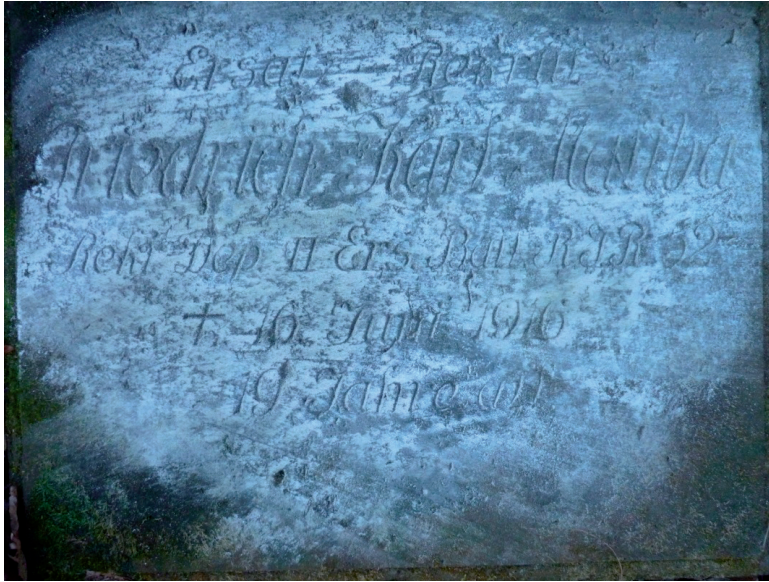 Ersatz Rekrut
Friedrich Karl
Rekr Dep II Ers Batl R.I.R
† 16 Juni 1916
19 Jahre alt